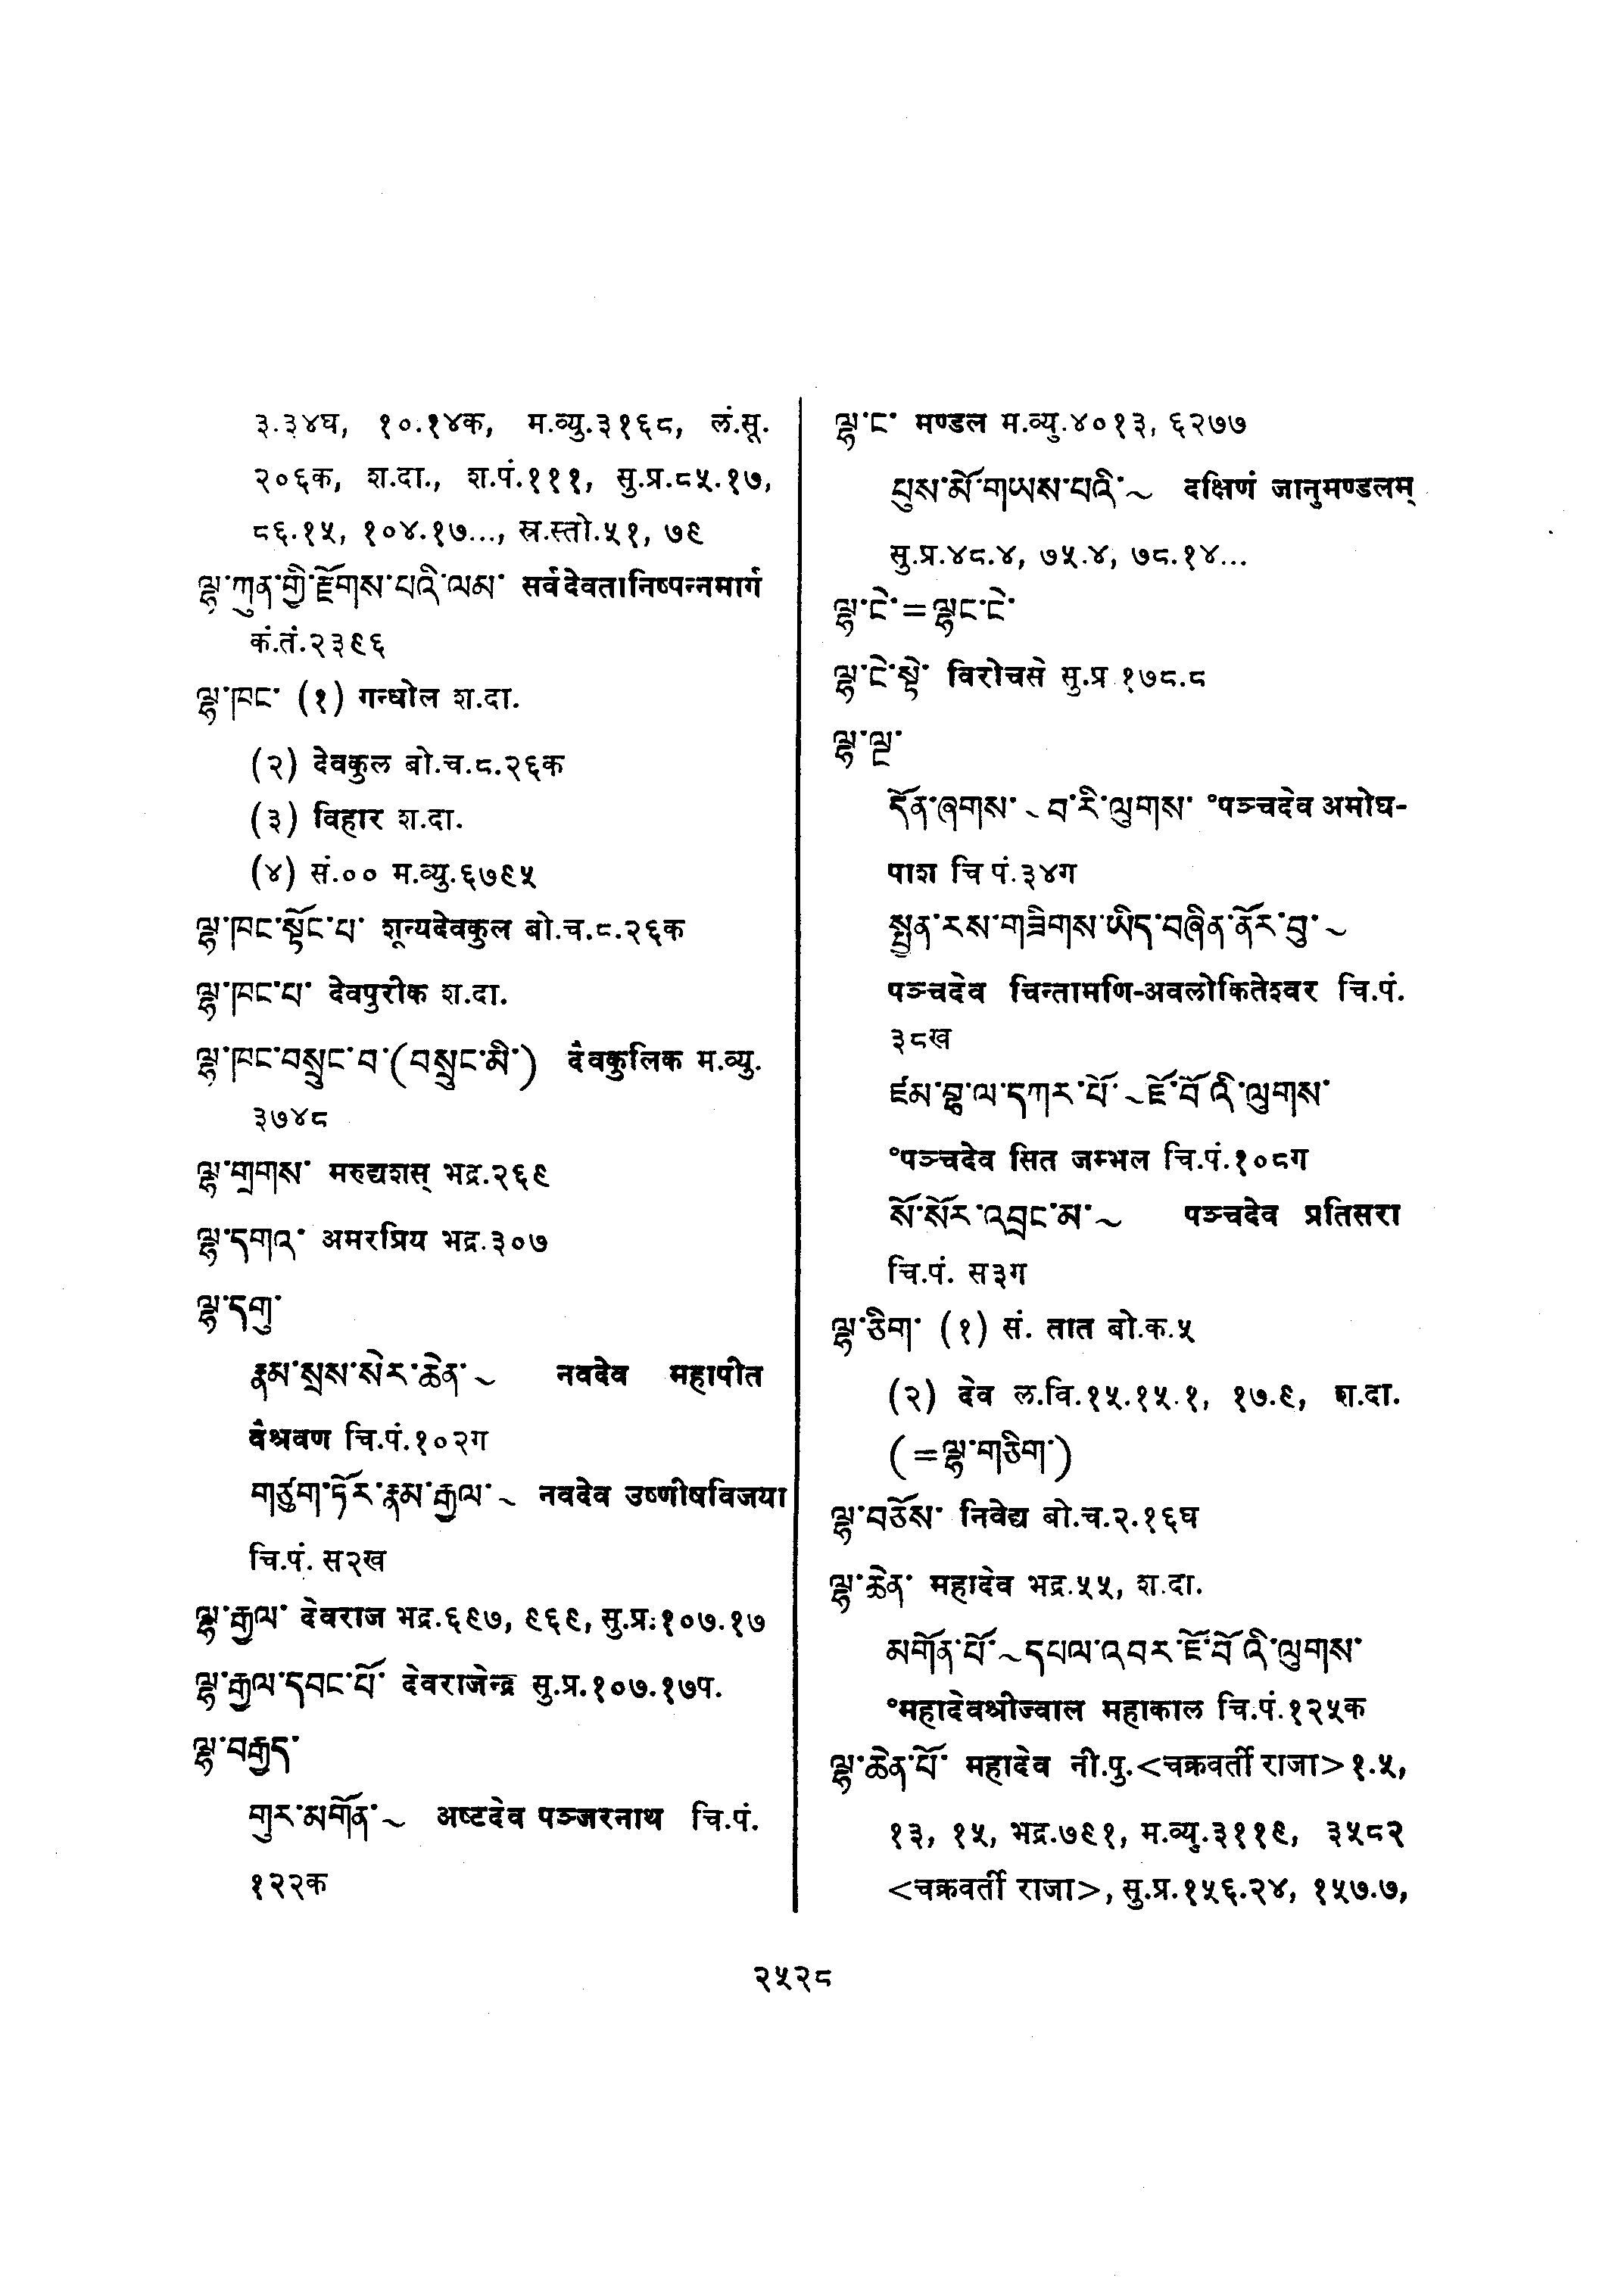 ३.३४घ, १०.१४क, म.व्यु.३१६८, लं.सू.
२०६क, श.दा., श.पं.१११, सु.प्र.८५.१७,
८६.१५, १०४.१७..., स्र.स्तो.५१, ७९
ལྷ་ཀུན་གྱི་རྫོགས་པའི་ལམ་ सर्वदेवतानिष्पन्नमार्ग
कं.तं.२३९६
ལྷ་ཁང་ (१) गन्धोल श.दा.
(२) देवकुल बो.च.८.२६क
(३) विहार श.दा.
(४) सं.०० म.व्यु.६७९५
ལྷ་ཁང་སྟོང་པ་ शून्यदेवकुल बो.च.८.२६क
ལྷ་ཁང་པ་ देवपुरीक श.दा.
ལྷ་ཁང་བསྲུང་བ་(བསྲུང་མི་) दैवकुलिक म.व्यु.
३७४८
ལྷ་གྲགས་ मरुद्यशस् भद्र.२६९
ལྷ་དགའ་ अमरप्रिय भद्र.३०७
ལྷ་དགུ་
རྣམ་སྲས་སེར་ཆེན་~ नवदेव महापीत
वैश्रवण चि.पं.१०२ग
གཙུག་ཏོར་རྣམ་རྒྱལ་~ नवदेव उष्णीषविजया
चि.पं. स२ख
ལྷ་རྒྱལ་ देवराज भद्र.६९७, ९६९, सु.प्र.१०७.१७
ལྷ་རྒྱལ་དབང་པོ་ देवराजेन्द्र सु.प्र.१०७.१७प.
ལྷ་བརྒྱད་
གུར་མགོན་~ अष्टदेव पञ्जरनाथ चि.पं.
१२२क
ལྷ་ང་ मण्डल म.व्यु.४०१३, ६२७७
པུས་མོ་གཡས་པའི་~ दक्षिणं जानुमण्डलम्
सु.प्र.४८.४, ७५.४, ७८.१४...
ལྷ་ངེ་=ལྷང་ངེ་
ལྷ་ངེ་སྟེ་ विरोचसे सु.प्र.१७८.८
ལྷ་ལྔ་
དོན་ཞགས་~བ་རི་ལུགས་ °पञ्चदेव अमोघ-
पाश चि पं.३४ग
སྤྱན་རས་གཟིགས་ཡིད་བཞིན་ནོར་བུ་~
पञ्चदेव चिन्तामणि-अवलोकितेश्वर चि.पं.
३८ख
ཛམ་བྷ་ལ་དཀར་པོ་~ཇོ་བོ་འི་ལུགས་
°पञ्चदेव सित जम्भल चि.पं.१०८ग
སོ་སོར་འབྲང་མ་~ पञ्चदेव प्रतिसरा
चि.पं. स३ग
ལྷ་ཅིག་ (१) सं. तात बो.क.५
(२) देव ल.वि.१५.१५.१, १७.९, श.दा.
(=ལྷ་གཅིག་)
ལྷ་བཅོས་ निवेद्य बो.च.२.१६घ
ལྷ་ཆེན་ महादेव भद्र.५५, श.दा.
མགོན་པོ་~དཔལ་འབར་ཇོ་བོ་འི་ལུགས་
°महादेवश्रीज्वाल महाकाल चि.पं.१२५क
ལྷ་ཆེན་པོ་ महादेव नी.पु.<चक्रवर्ती राजा>१.५,
१३, १५, भद्र.७९१, म.व्यु.३११९, ३५८२
<चक्रवर्ती राजा>, सु.प्र.१५६.२४, १५७.७,
२५२८